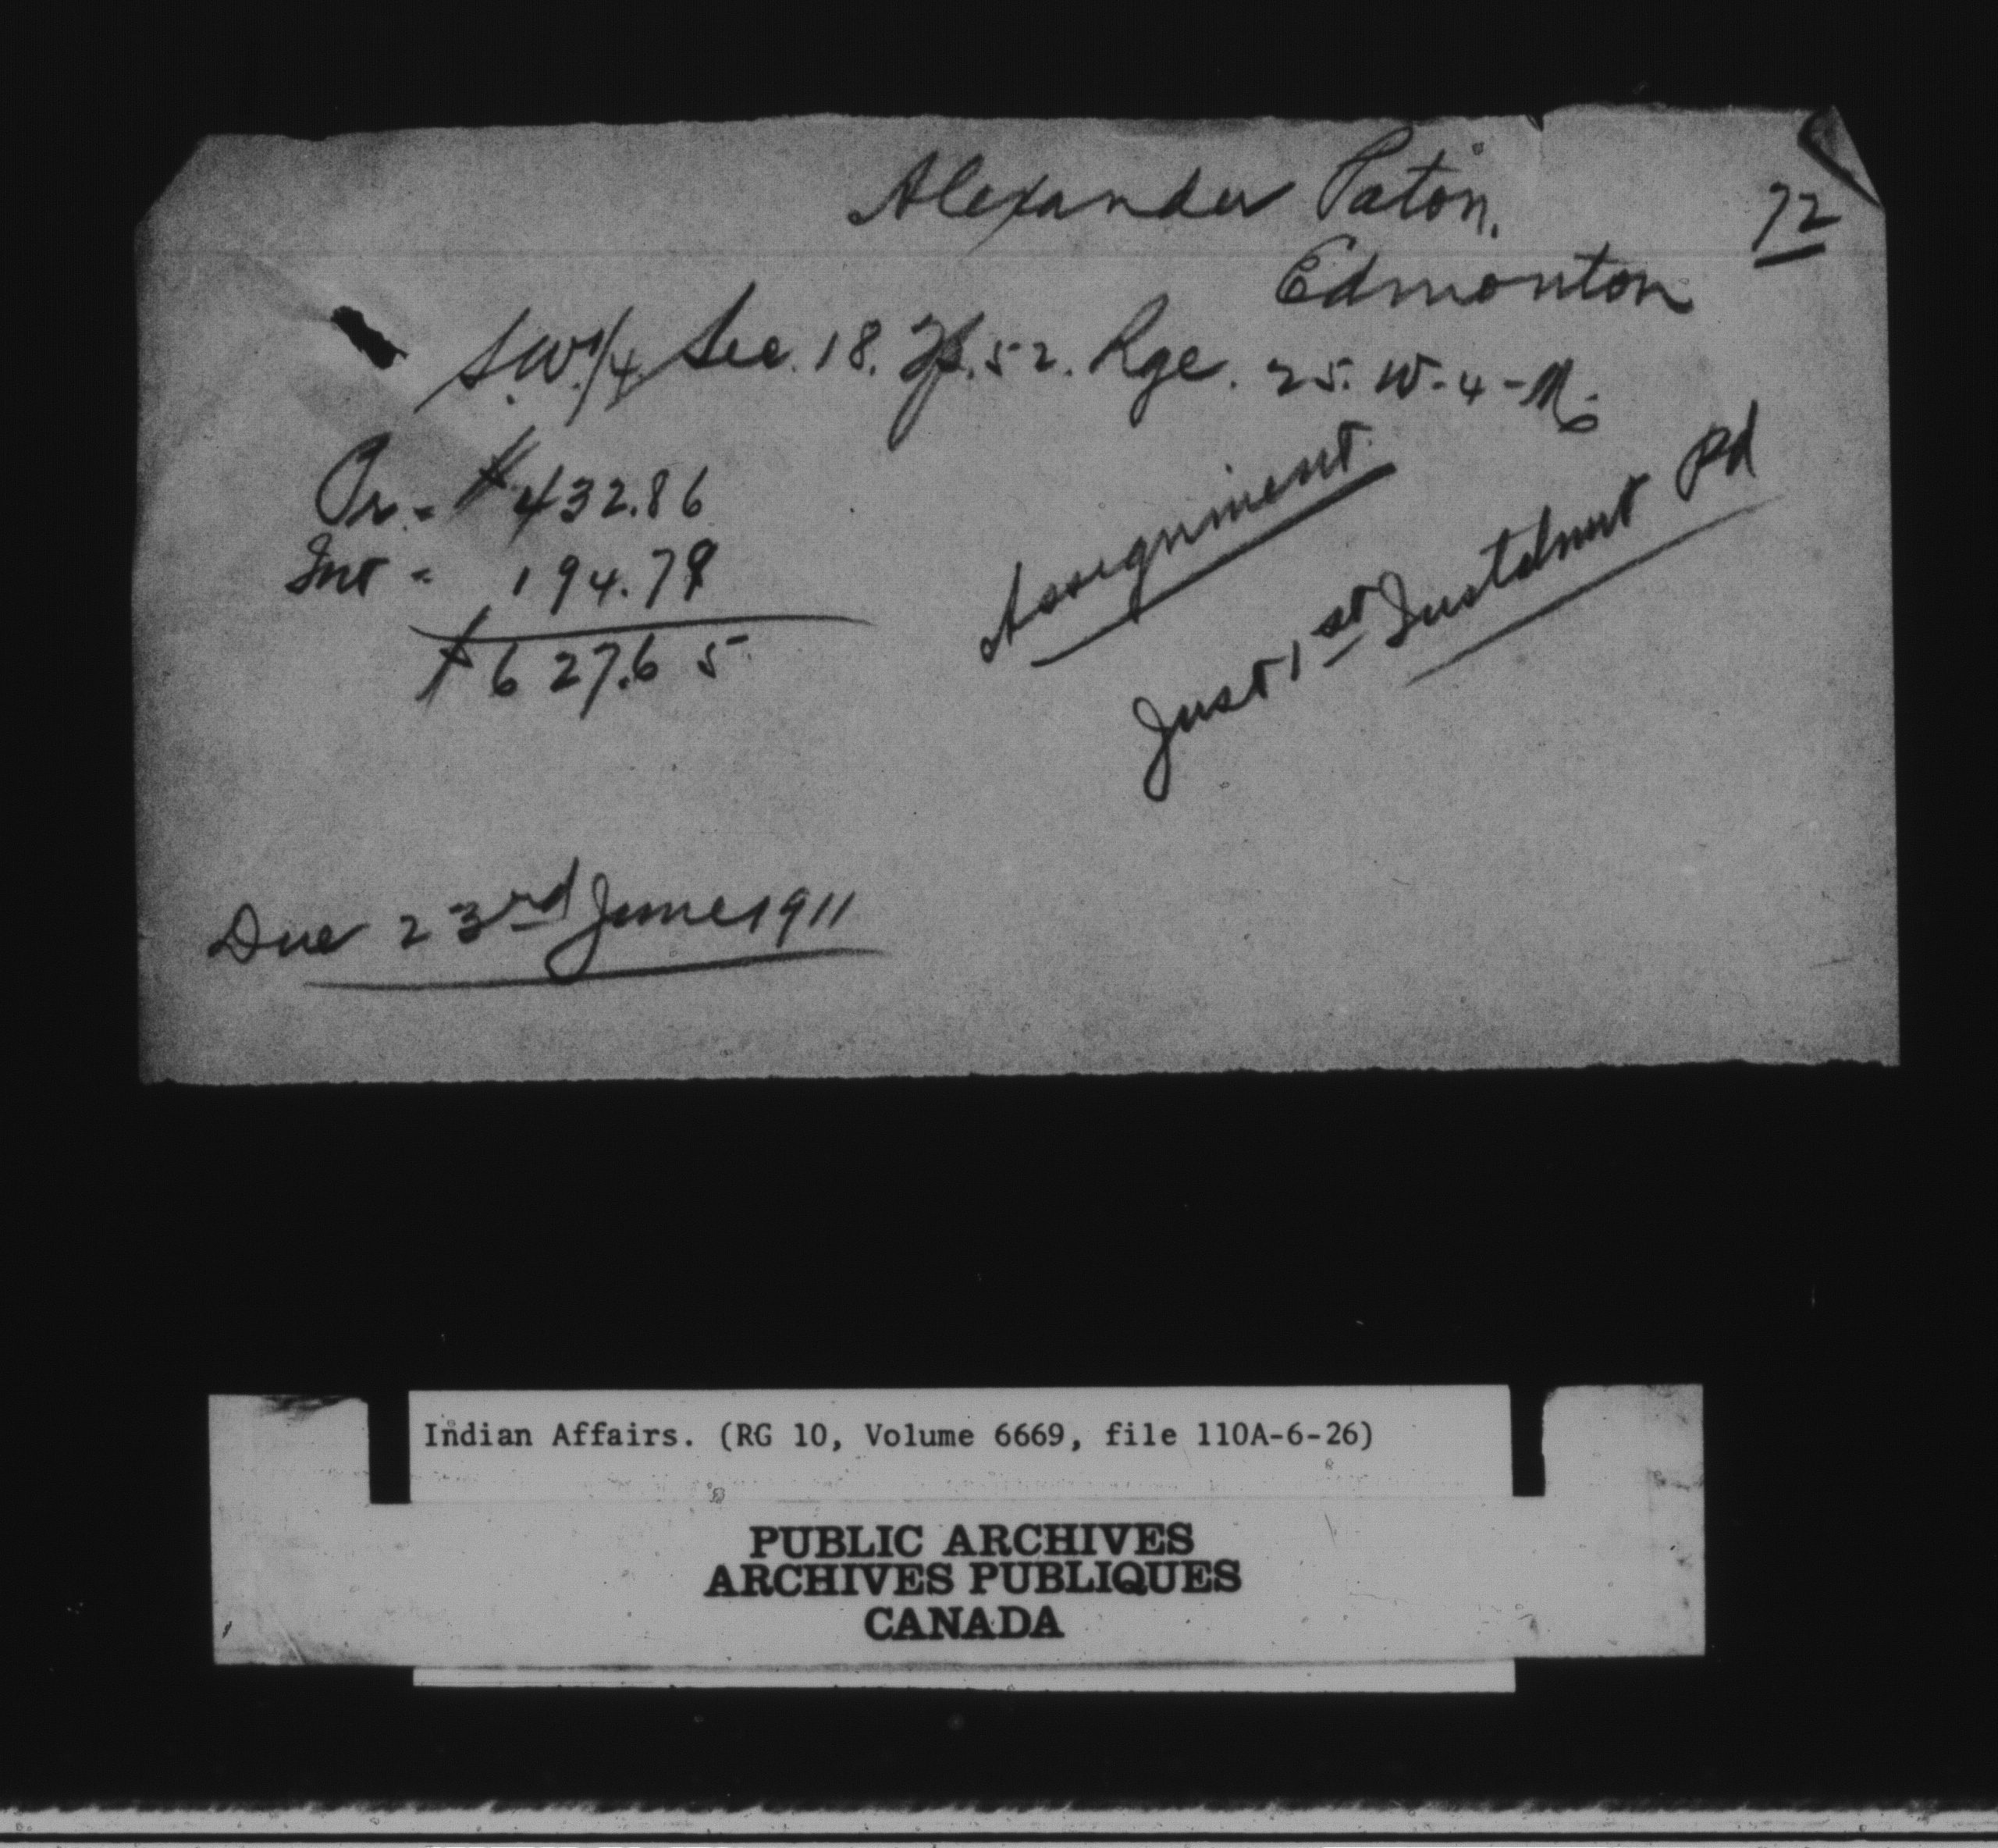 Alexander Paton.
72
Edmonton
S.W.1/4 Sec. 18. Tp. 52. Rge. 25. W-4-M.
Pr. = $432.86
Int = 194.79
$627.65
Assignment
Just 1st Instalment Pd
Due 23rd June 1911
Indian Affairs. (RG 10, Volume 6669, file 110A-6-26)
PUBLIC ARCHIVES
ARCHIVES PUBLIQUES
CANADA